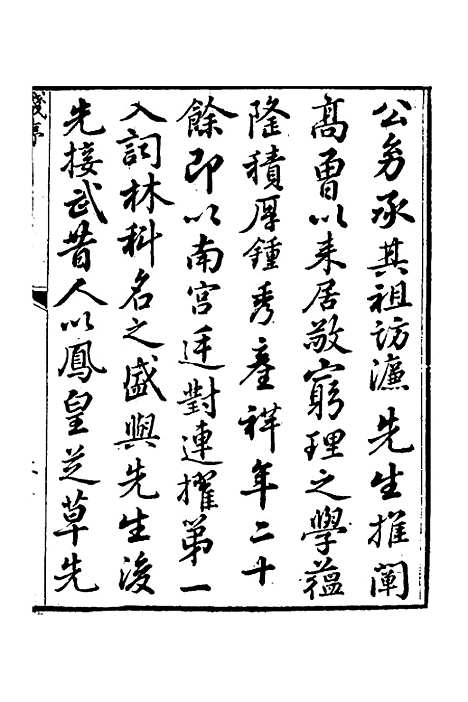 公弟承其祖訪濂先生推闡
高曾以来居敬窮理之學蕴
隆積厚鍾秀産祥年二十
餘即以南宫廷對連擢第一
入詞林科名之盛與先生後
先接武昔人以鳳皇芝草先